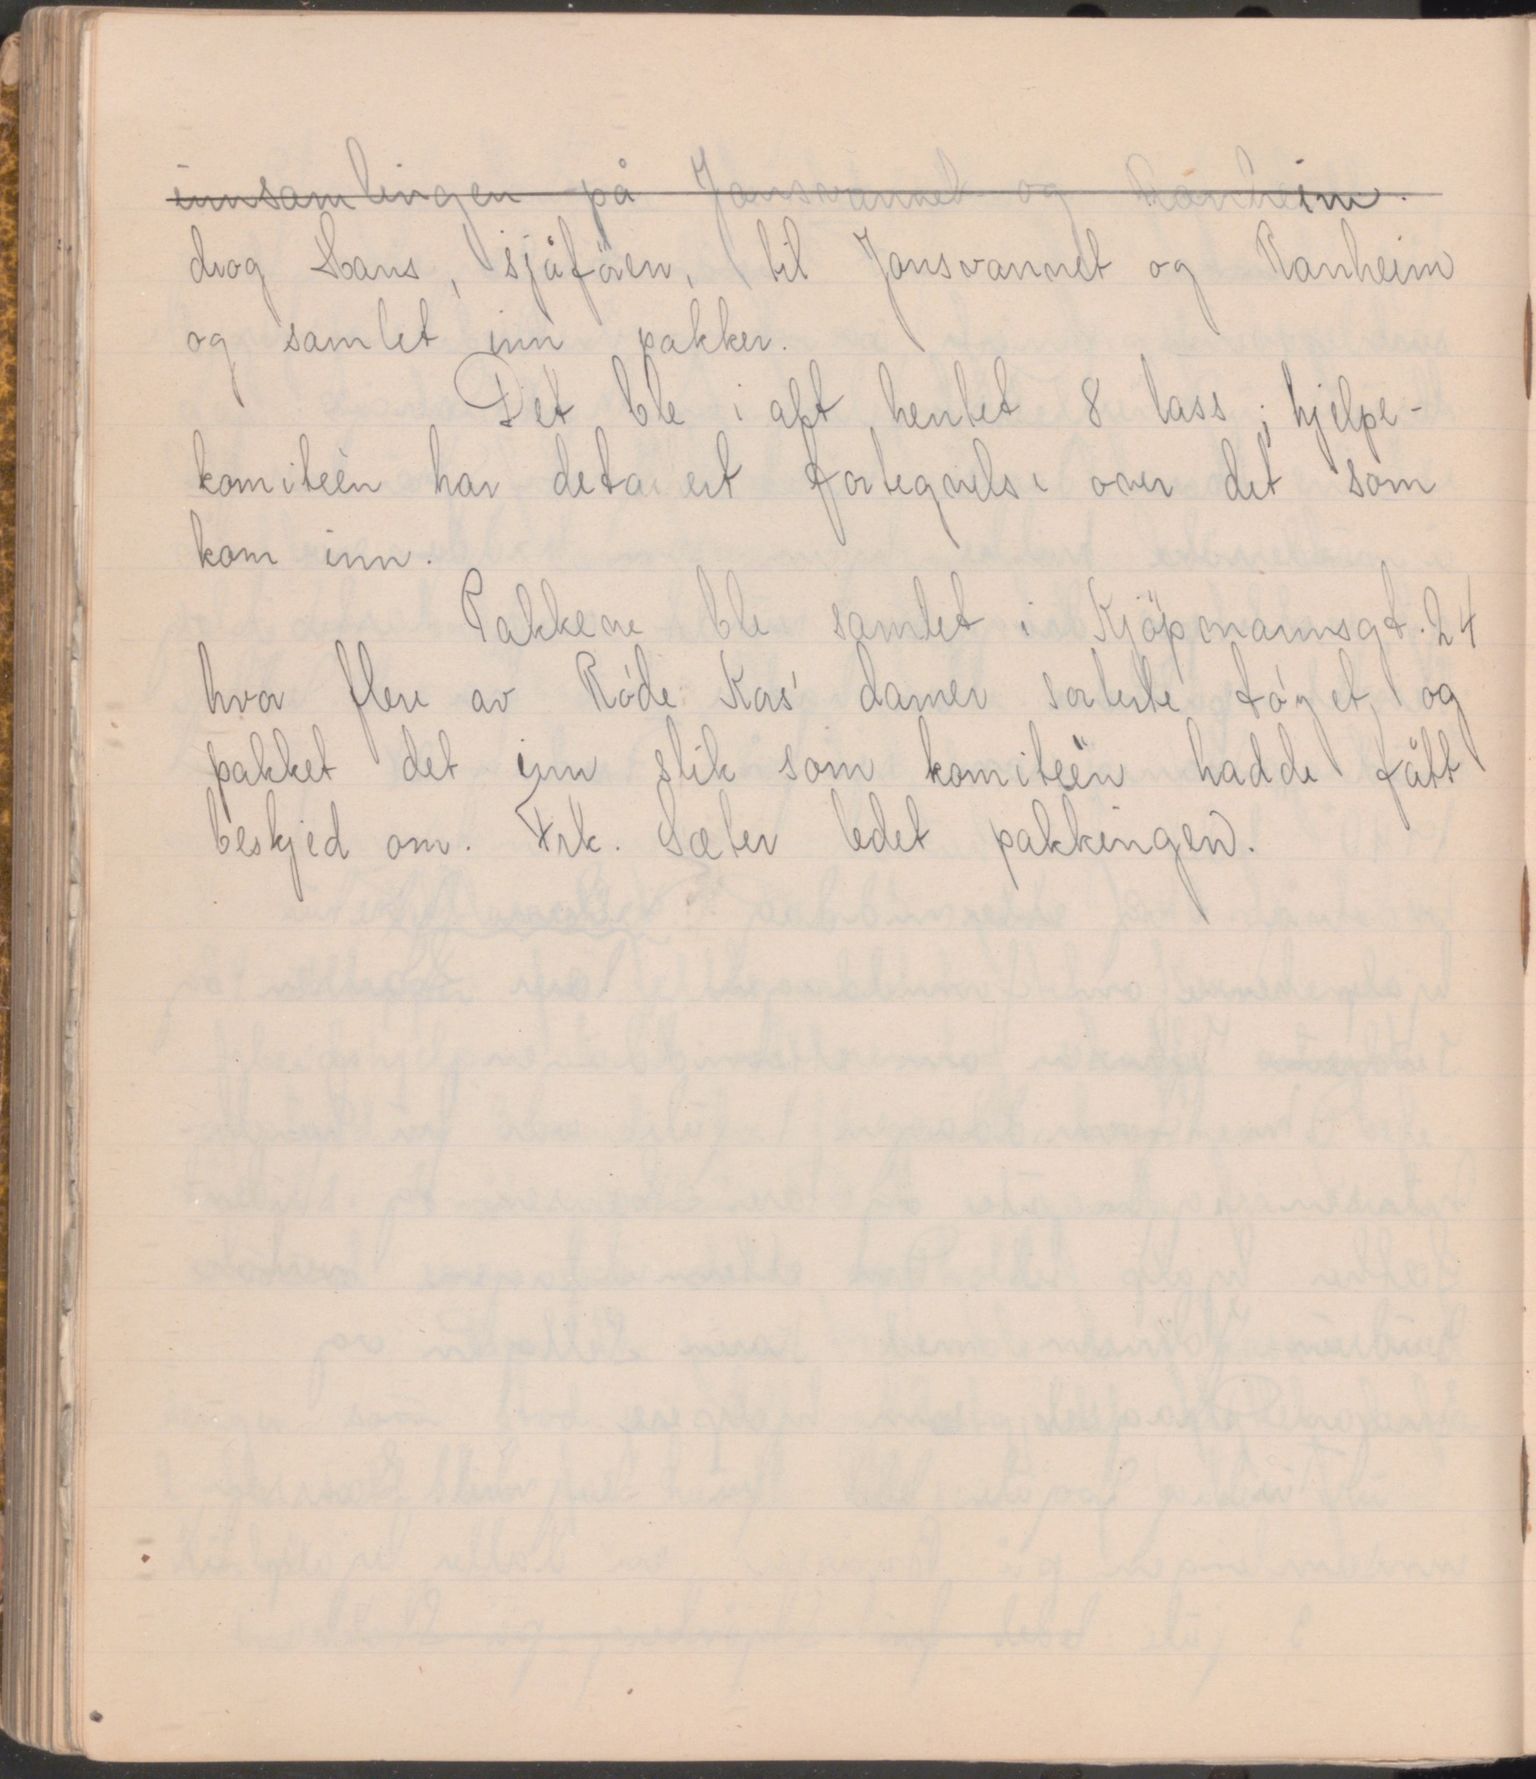 innsamlingen på Jonsvannet og Ranheim.
drog Hans, sjåføren, til Jonsvannet og Ranheim
og samlet inn pakker.
Det ble i alt hentet 8 lass; hjelpe-
komiteèn har detaert fortegnelse over det som
kom inn.
Pakkene ble samlet i Kjöpmannsgt. 24
hvor flere av Róde Kors' damer sorterte tóyet, og
pakket det inn slik som komiteèn hadde fått
beskjed om. Frk. Sæter ledet pakkingen.